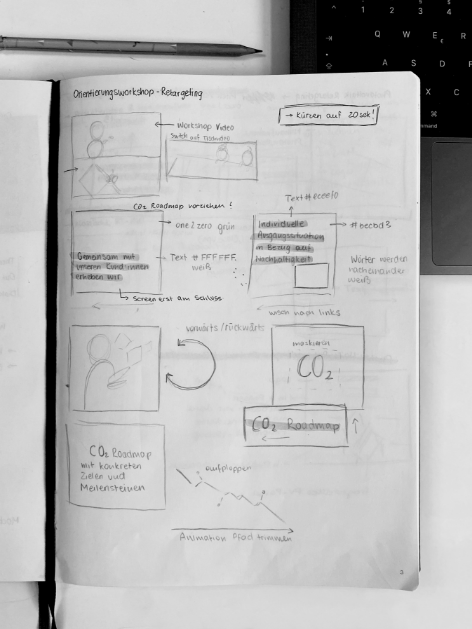 Orientierungsworkshop - Retargeting
→ Kürzen auf 20 sek!
Workshop Video
CO₂ Roadmap vorziehen!
one 2 zero grün
Gemeinsam mit
unseren Kund:innen
erheben wir
Text #FFFFFF
weiß
Screen erst am Schluss
Individuelle
Ausgangssituation
in Bezug auf
Nachhaltigkeit
Wörter werden
nacheinander
weiß
wisch nach links
vorwärts/rückwärts
CO₂
CO₂ Roadmap
CO₂ Roadmap
mit konkreten
Zielen und
Meilensteinen
aufploppen
Animation Pfad trimmen
1
2
3
4
Q
W
E
R
A
S
D
F
X
C